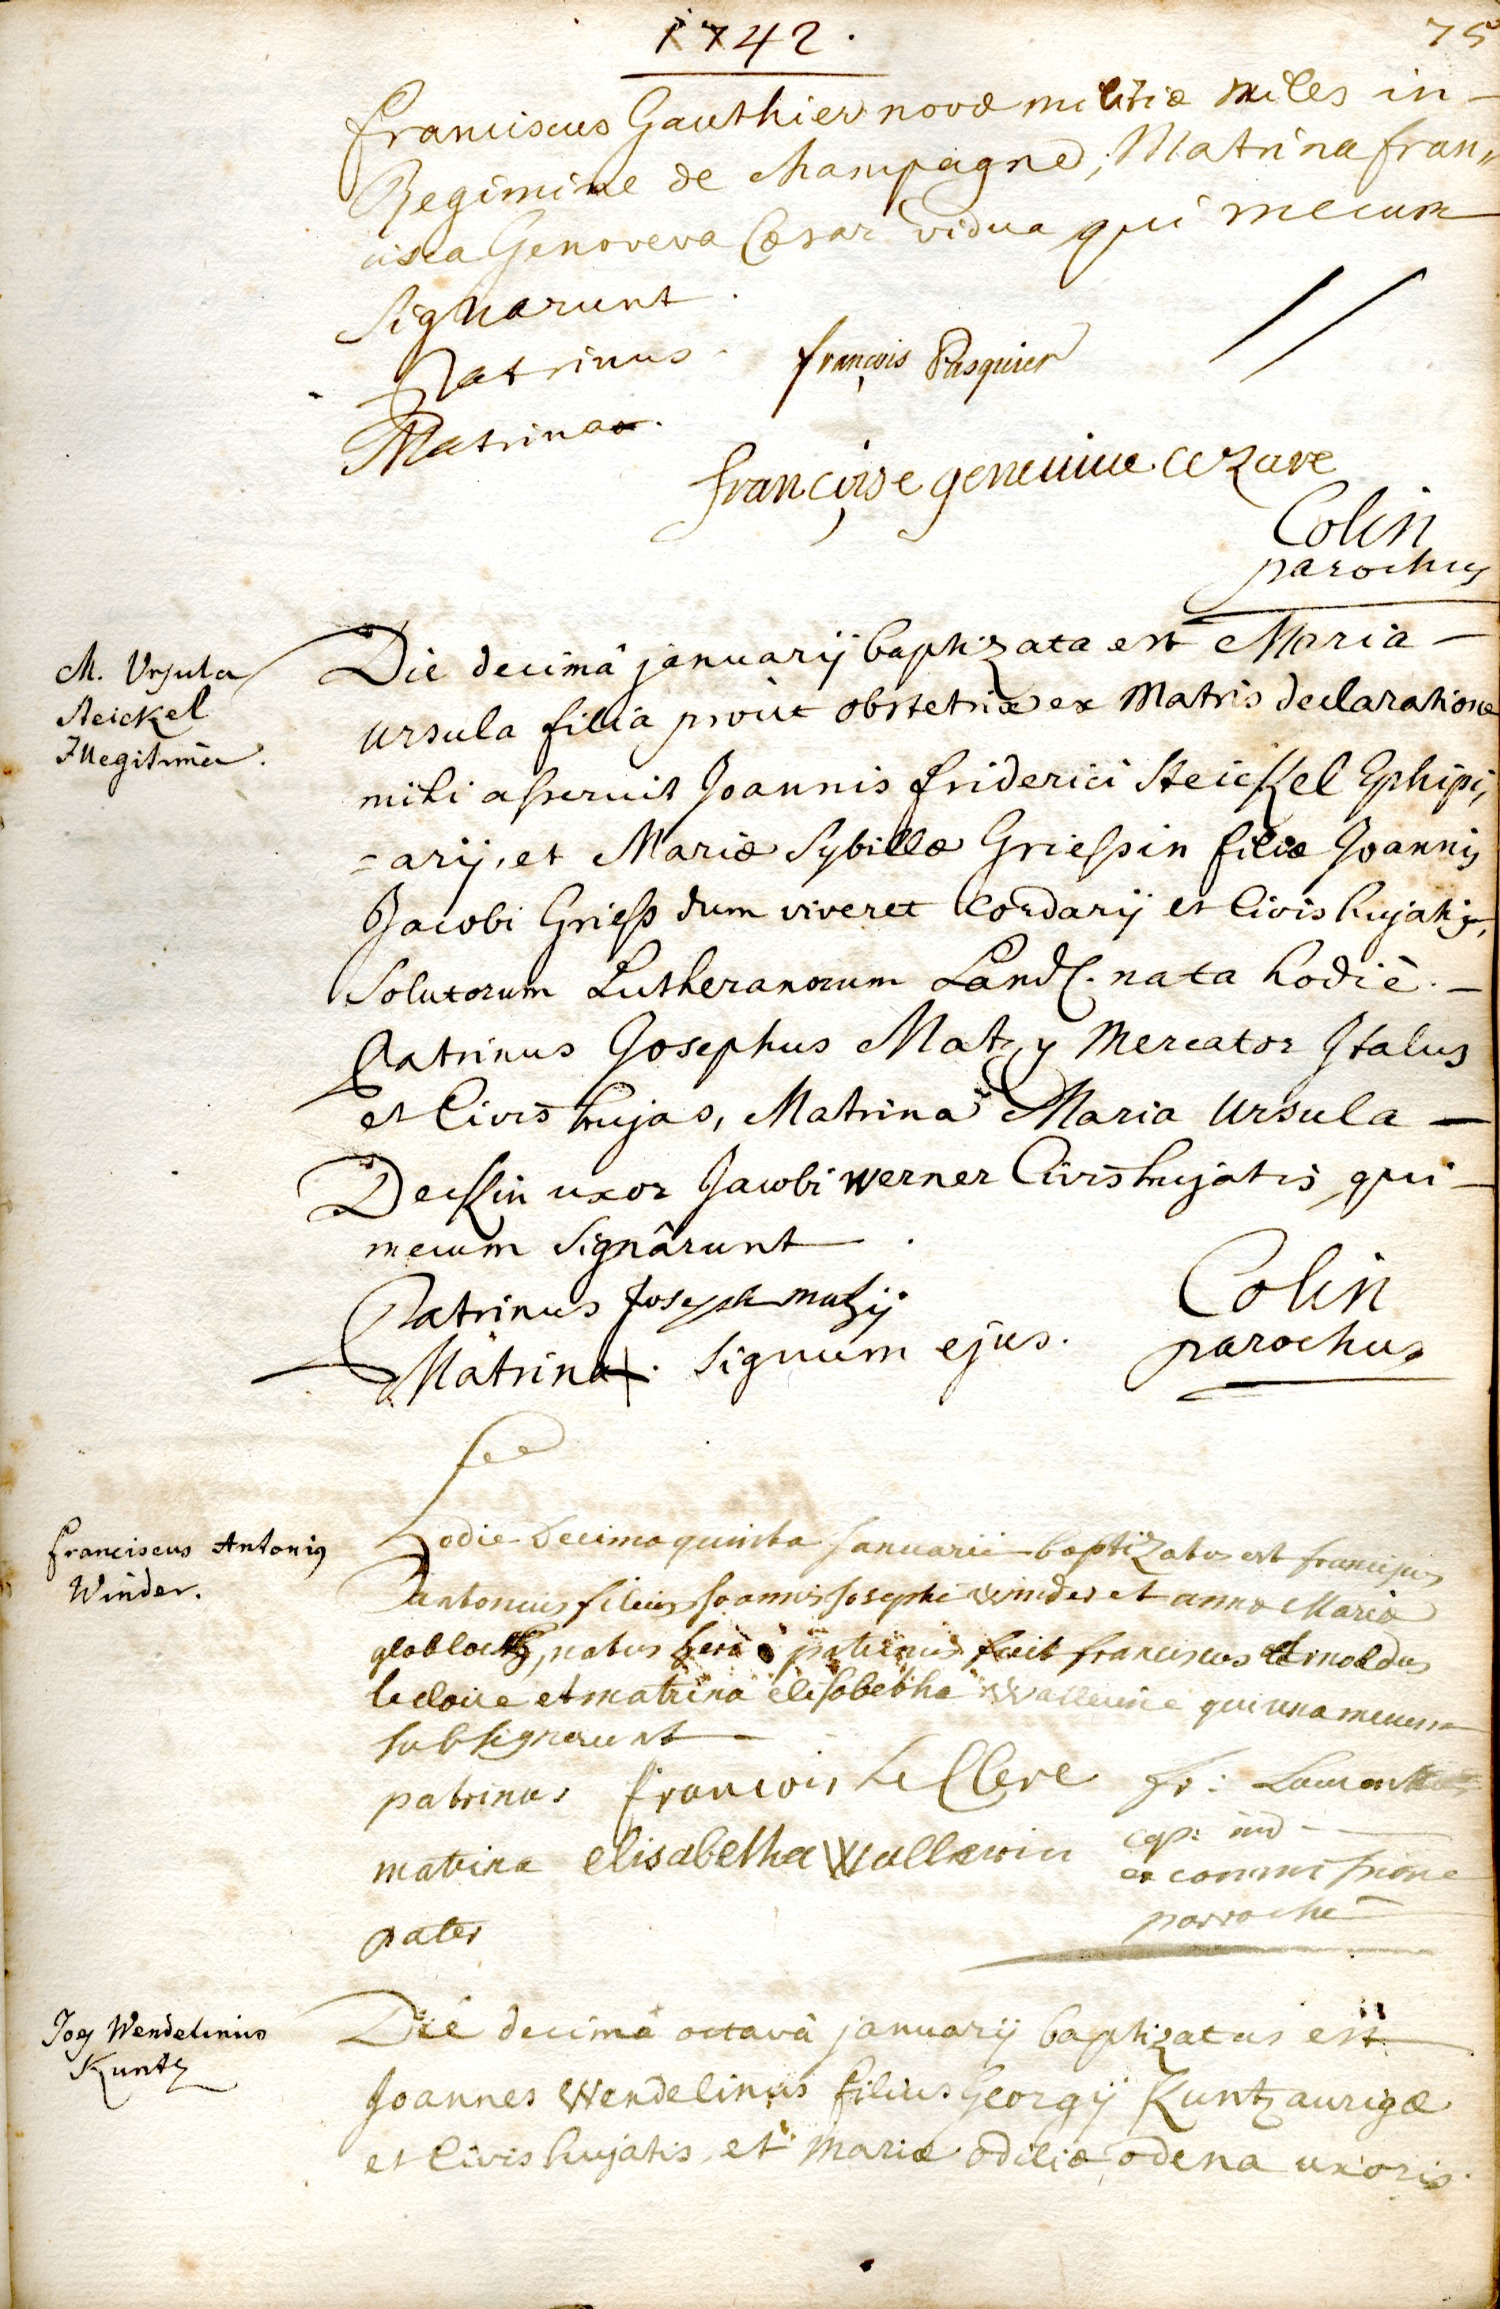 1742.
75
franciscus Gauthier novæ militiæ miles in-
Regimine de champagne, Matrina fran„
cisca Genoveva Cæsar vidua qui mecum
signarunt.
Patrinus. françois Pasquier
Matrina.
françoise geneuiue cezare
Colin
parochus
M. Ursula
Steickel
Illegitima.
Die decimâ januarij baptizata est Maria -
ursula filia proüt obstetrix ex Matris declaratione
mihi asseruit Joannis friderici Steickel Ephipi,
=arij, et Mariæ Sybillæ Griessin filiæ Joannis
Jacobi Griess dum viveret Cordarij et Civis hujatis,
Solutorum Lutheranorum Land. nata hodiè. -
Patrinus Josephus Matzy Mercator Italus
et Civis hujas, Matrina Maria Ursula -
uxor Jacobi Werner Civis hujatis, qui -
mecum signârunt.
Patrinus Joseph matzij
Matrina +. Signum ejus.
Colin
parochus
franciscus Antonius
Winder.
hodie decima quinta Januarii baptizatus est franciscus
antonius filius Joannis Josephi winder et annæ Mariæ
natus heri patrinus fuit franciscus Arnoldus
le claire et matrina elisabetha Wallerine qui una mecum
subsignarunt
patrinus françois Le Clere fr: Laurentius
matrina elisabetha Wallerin cap: ind
ex commissione
parrochi
pater
Joes Wendelinus
Kuntz
Die decimâ octavâ januarij baptizatus est
Joannes Wendelinus filius Georgij Kuntz aurigæ
et Civis hujatis, et Mariæ odiliæ odena uxoris.